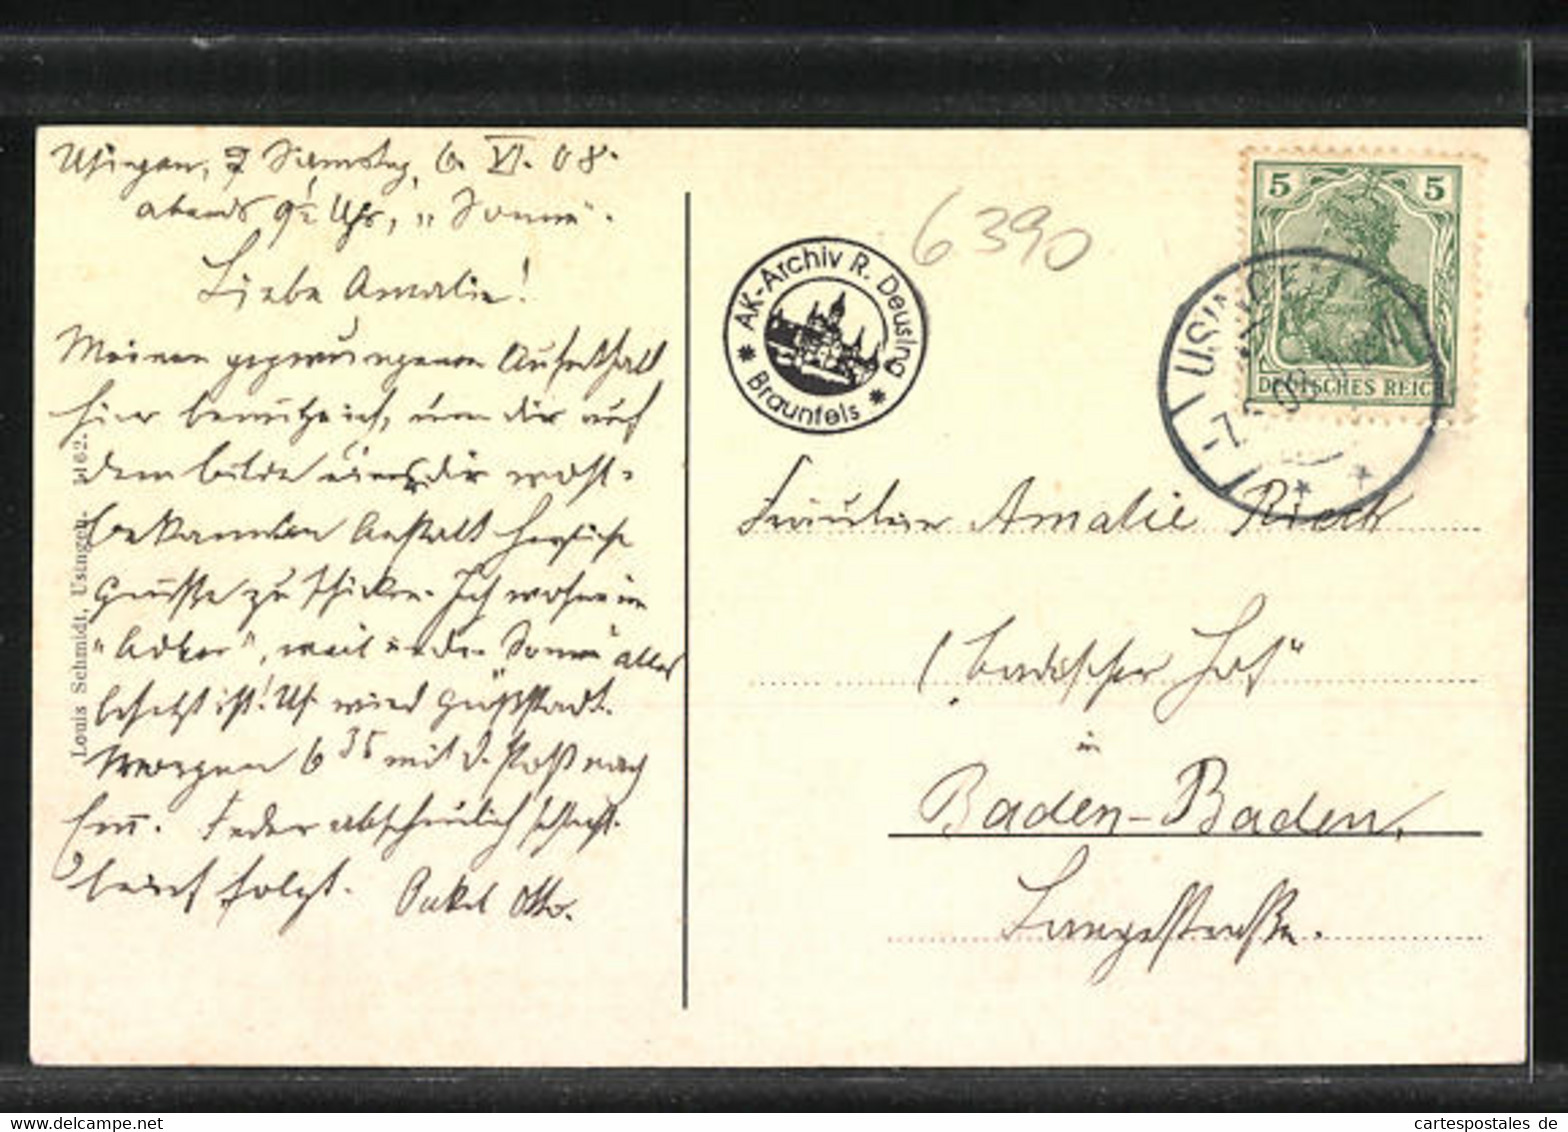 Usingen, Samstag, 6. VI. 08.
abends 9½ Uhr, „Sonne".
Liebe Amalie!
Meinen gezwungenen Aufenthalt
hier benutze ich, um Dir auf
dem Bilde dir wohl-
bekannten Anstalt herzliche
Grüsse zu schicken. Ich wohne im
"Adler", weil in der Sonne alles
besetzt ist! Us. wird Großstadt.
Morgen 6 35 mit d. Post nach
Feder abscheulich schlecht.
Brief folgt. Onkel Otto.
Louis Schmidt, Usingen. 162.
AK-Archiv R. Deusing
* Braunfels *
6390
5 5
DEUTSCHES REICH
USINGEN
Fräulein Amalie
„Badischer Hof"
in
Baden-Baden,
Langestraße.
cartespostales de